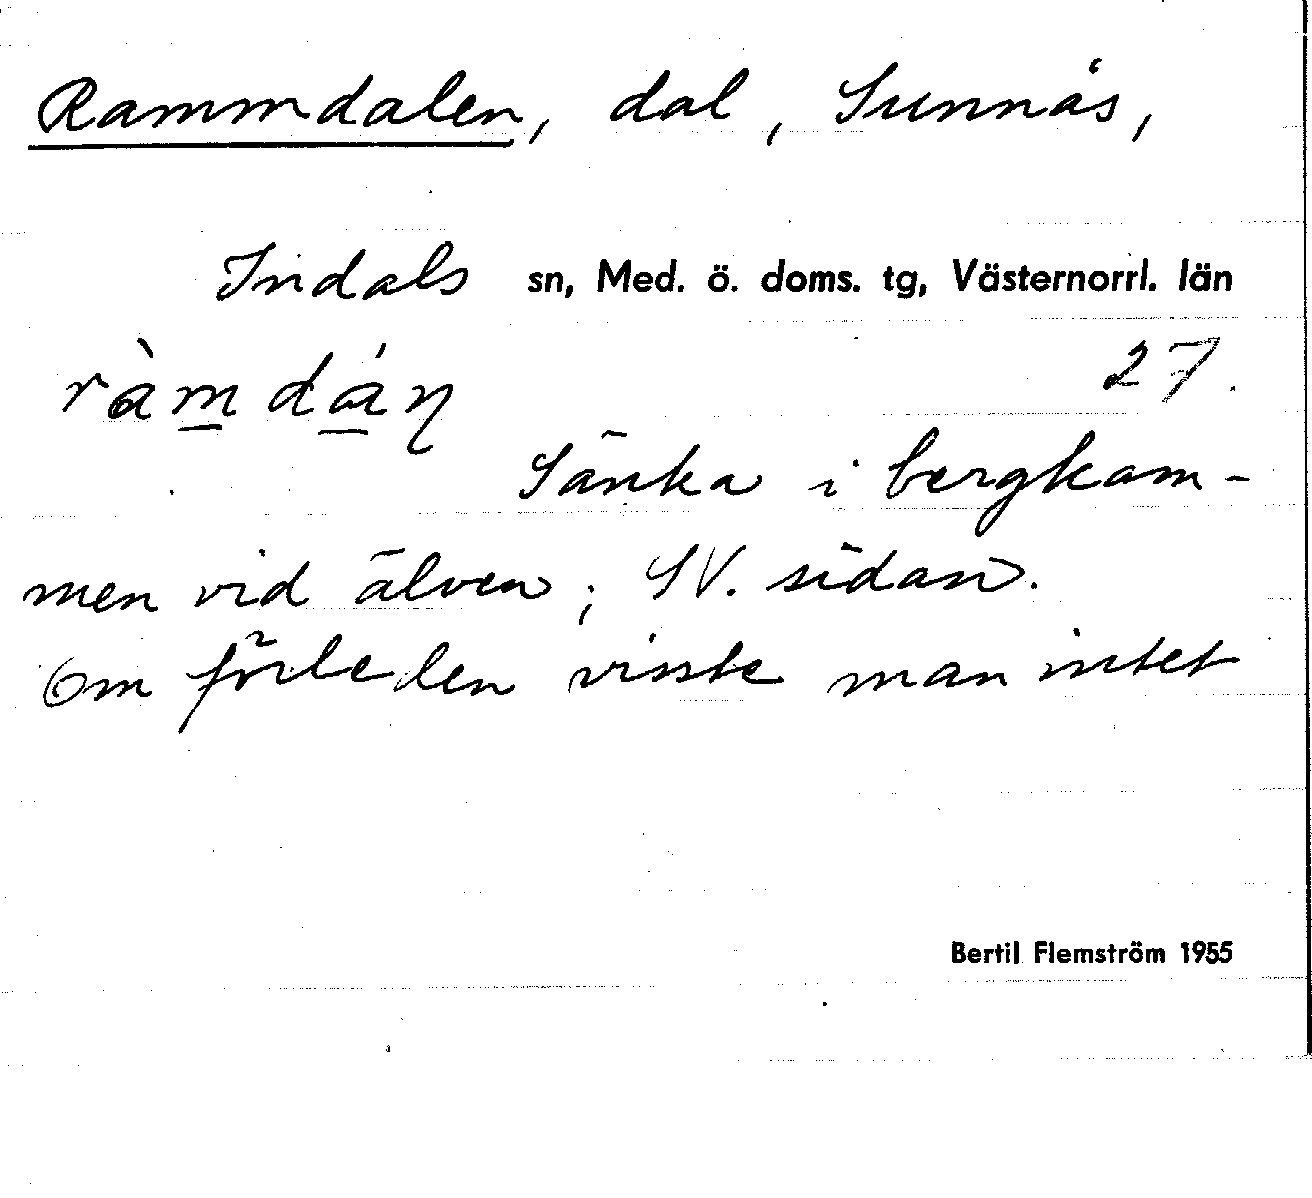 Rammdalen, dal, Sunnås,
Indals sn, Med. ö. doms. tg, Västernorrl. län
ràm̲dá̲ƞ 27.
Sänka i bergkam-
men vid älven; SV. sidan.
Om förleden visste man intet
Bertil Flemström 1955